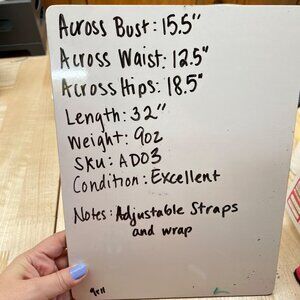 Across Bust: 15.5"
Across Waist: 12.5"
Across Hips: 18.5"
Length: 32"
Weight: 9oz
SKU: AD03
Condition: Excellent
Notes: Adjustable Straps
and wrap